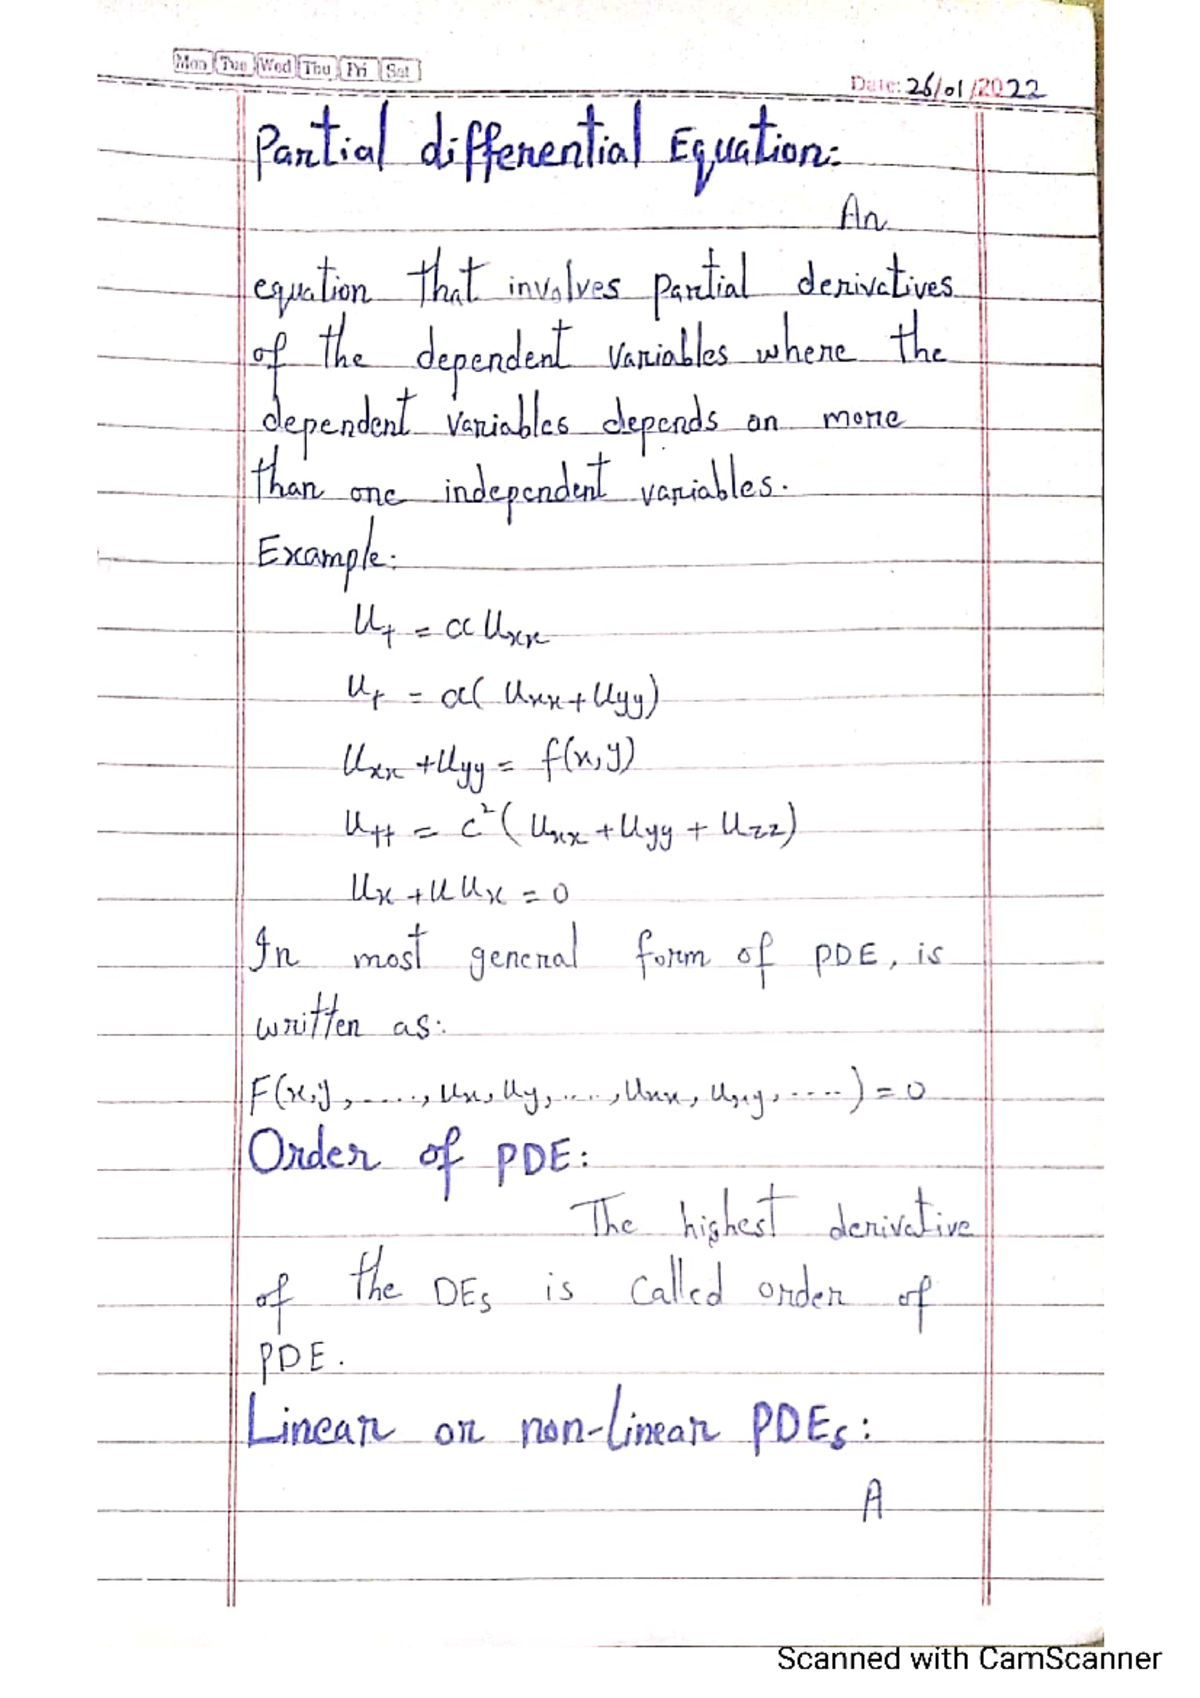 Mon Tue Wed Thu Fri Sat
Date: 26/01/2022
Partial differential Equation:
An
equation that involves partial derivatives
of the dependent variables where the
dependent variables depends on more
than one independent variables.
Example:
u_t = α u_xx
u_t = α( u_xx + u_yy)
u_xx + u_yy = f(x,y)
u_tt = c²( u_xx + u_yy + u_zz)
u_x + u u_x = 0
In most general form of PDE, is
written as:
F(x,y, ....., u_x, u_y, ...., u_xx, u_xy, .....) = 0
Order of PDE:
The highest derivative
of the DEs is called order of
PDE.
Linear or non-linear PDEs:
A
Scanned with CamScanner